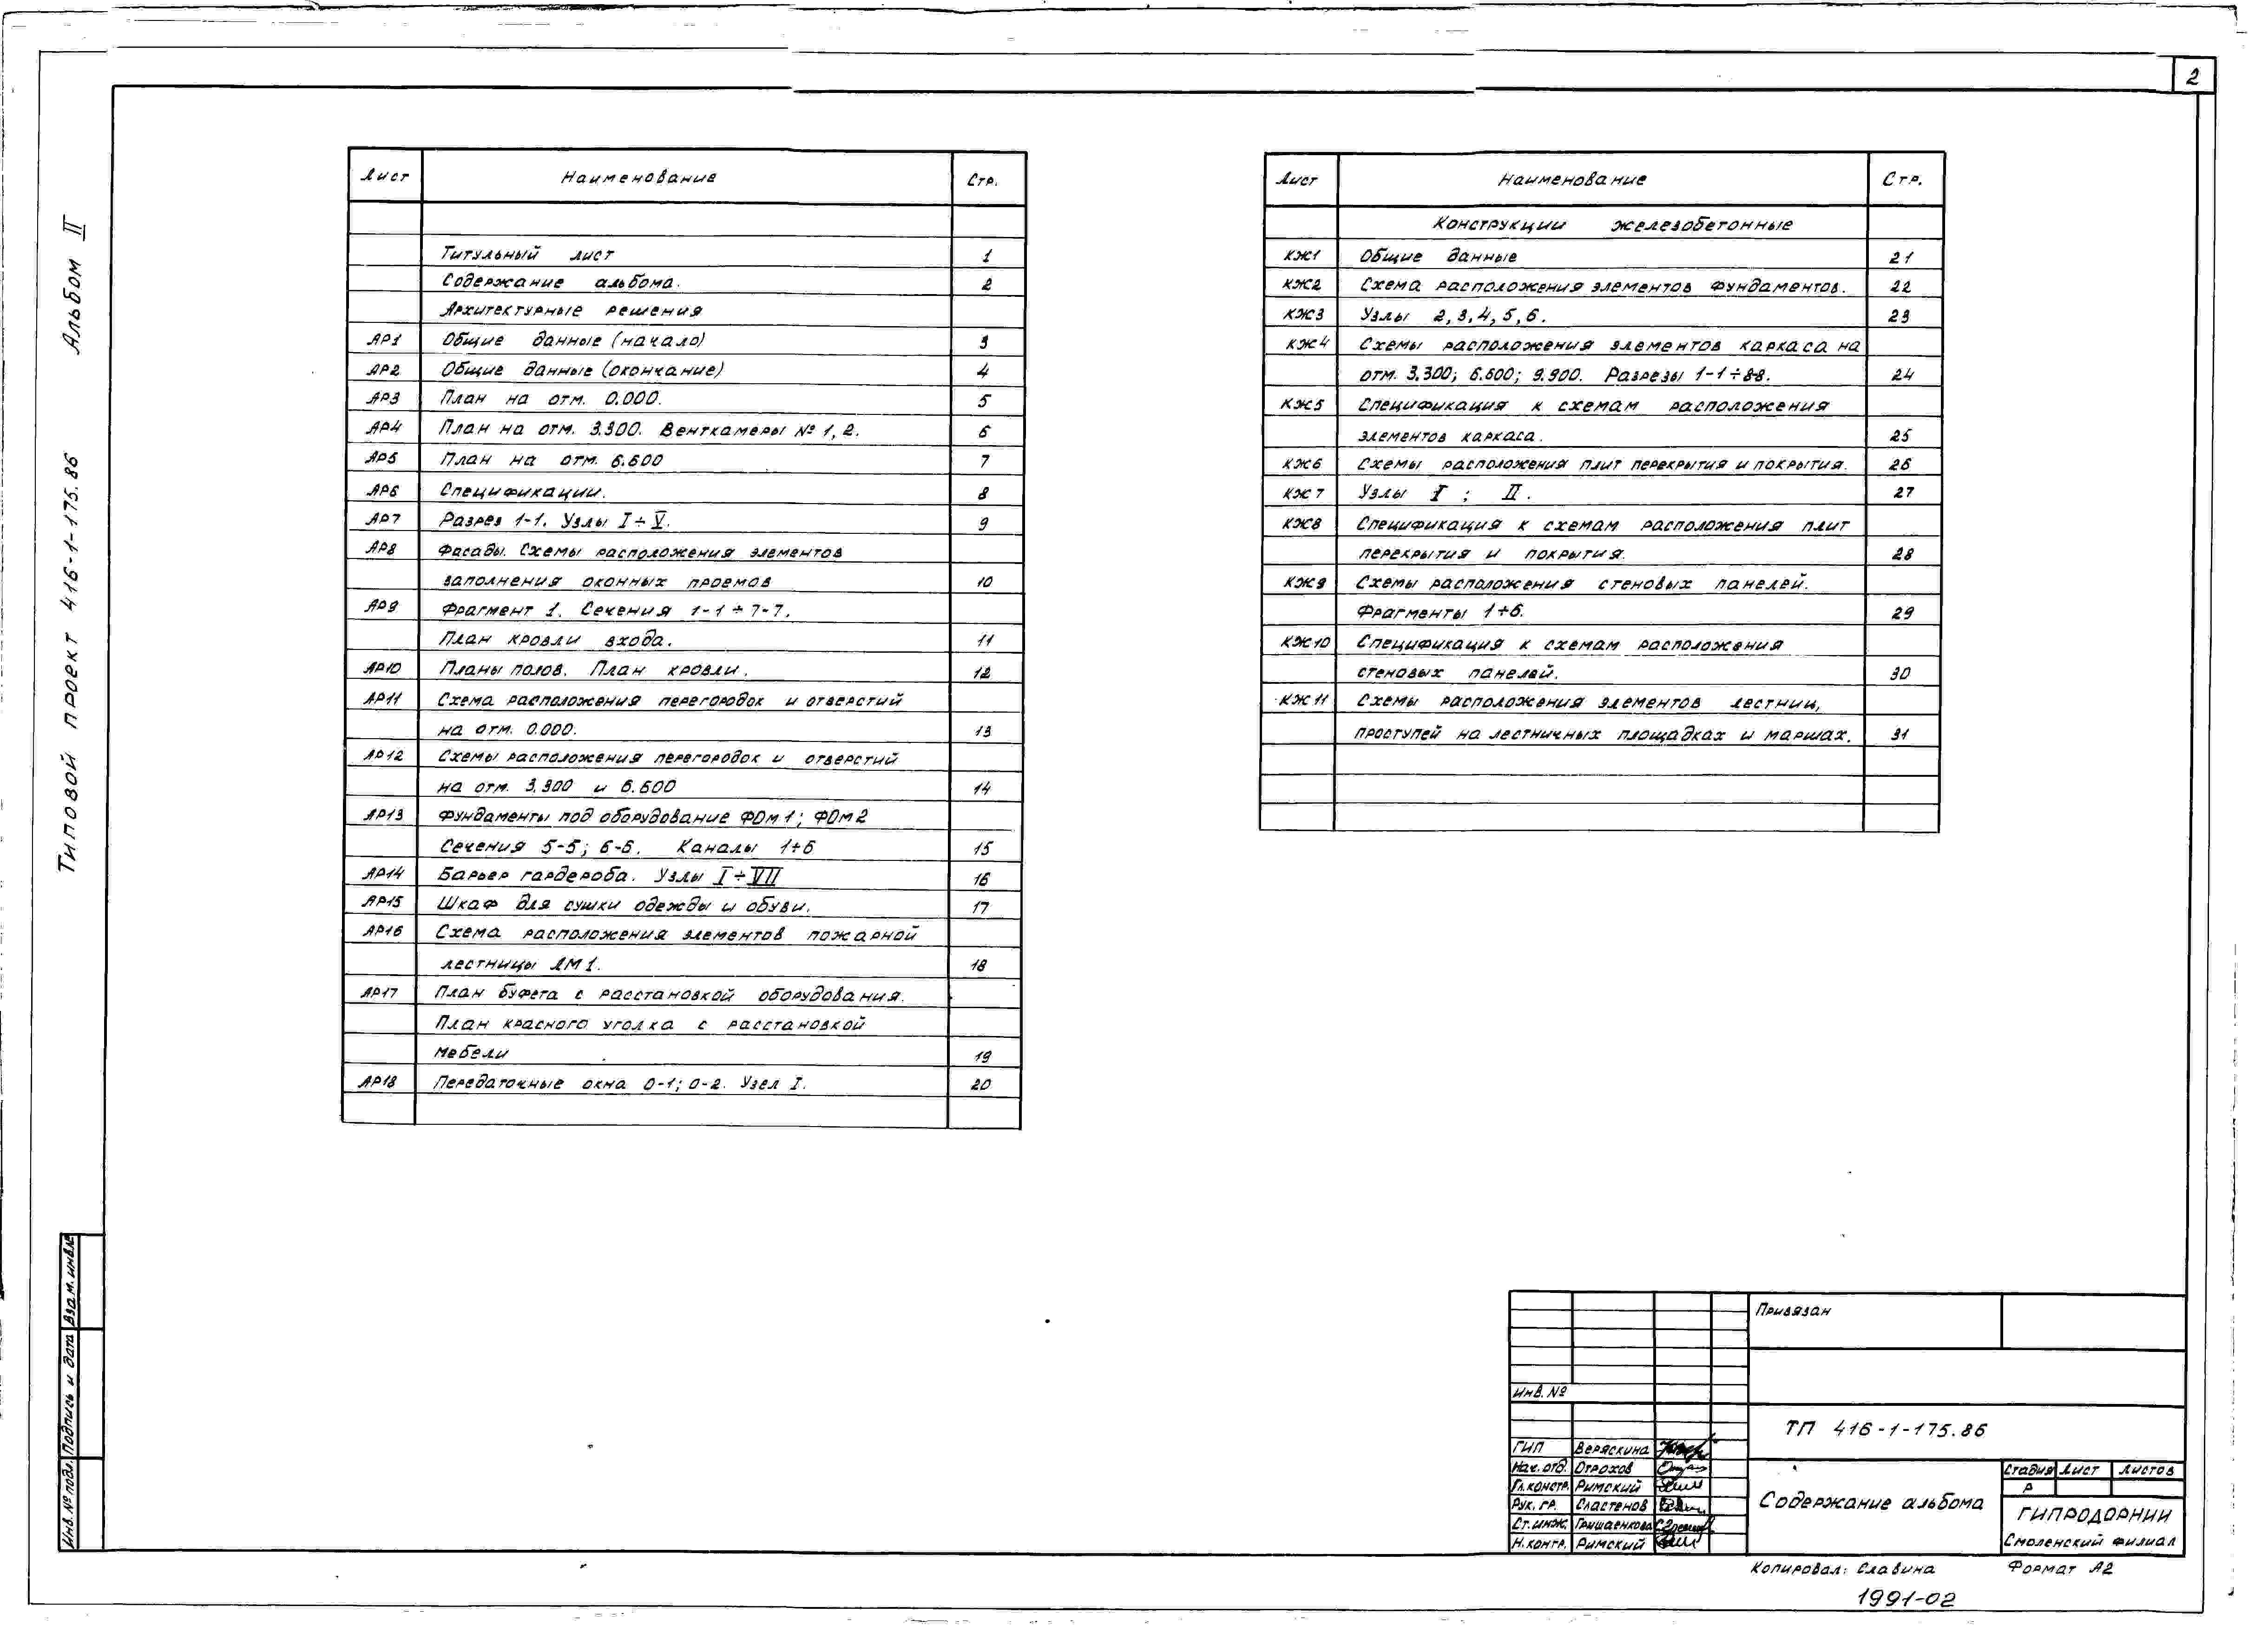 2
Альбом II
Типовой проект 416-1-175.86
Лист Наименование Стр.
Титульный лист 1
Содержание альбома. 2
Архитектурные решения
АР1 Общие данные (начало) 3
АР2 Общие данные (окончание) 4
АР3 План на отм. 0.000. 5
АР4 План на отм. 3.300. Венткамеры № 1, 2. 6
АР5 План на отм. 6.600 7
АР6 Спецификации. 8
АР7 Разрез 1-1. Узлы I ÷ V. 9
АР8 Фасады. Схемы расположения элементов
заполнения оконных проемов 10
АР9 Фрагмент 1. Сечения 1-1 ÷ 7-7.
План кровли входа. 11
АР10 Планы полов. План кровли. 12
АР11 Схема расположения перегородок и отверстий
на отм. 0.000. 13
АР12 Схемы расположения перегородок и отверстий
на отм. 3.300 и 6.600 14
АР13 Фундаменты под оборудование ФОм1; ФОм2
Сечения 5-5; 6-6. Каналы 1÷6 15
АР14 Барьер гардероба. Узлы I ÷ VII 16
АР15 Шкаф для сушки одежды и обуви. 17
АР16 Схема расположения элементов пожарной
лестницы ЛМ1. 18
АР17 План буфета с расстановкой оборудования.
План красного уголка с расстановкой
мебели 19
АР18 Передаточные окна О-1; О-2. Узел I. 20
Лист Наименование Стр.
Конструкции железобетонные
КЖ1 Общие данные 21
КЖ2 Схема расположения элементов фундаментов. 22
КЖ3 Узлы 2, 3, 4, 5, 6. 23
КЖ4 Схемы расположения элементов каркаса на
отм. 3.300; 6.600; 9.900. Разрезы 1-1÷8-8. 24
КЖ5 Спецификация к схемам расположения
элементов каркаса. 25
КЖ6 Схемы расположения плит перекрытия и покрытия. 26
КЖ7 Узлы I ; II. 27
КЖ8 Спецификация к схемам расположения плит
перекрытия и покрытия. 28
КЖ9 Схемы расположения стеновых панелей.
Фрагменты 1÷6. 29
КЖ10 Спецификация к схемам расположения
стеновых панелей. 30
КЖ11 Схемы расположения элементов лестниц,
проступей на лестничных площадках и маршах. 31
Инв. № подл. Подпись и дата Взам. инв. №
Привязан
Инв. №
ТП 416-1-175.86
ГИП Веряскина
Нач. отд. Отрохов
Гл. констр. Римский
Рук. гр. Сластенов
Ст. инж. Гришаенкова
Н. контр. Римский
Содержание альбома
Стадия Лист Листов
Р
ГИПРОДОРНИИ
Смоленский филиал
Копировал: Славина Формат А2
1991-02